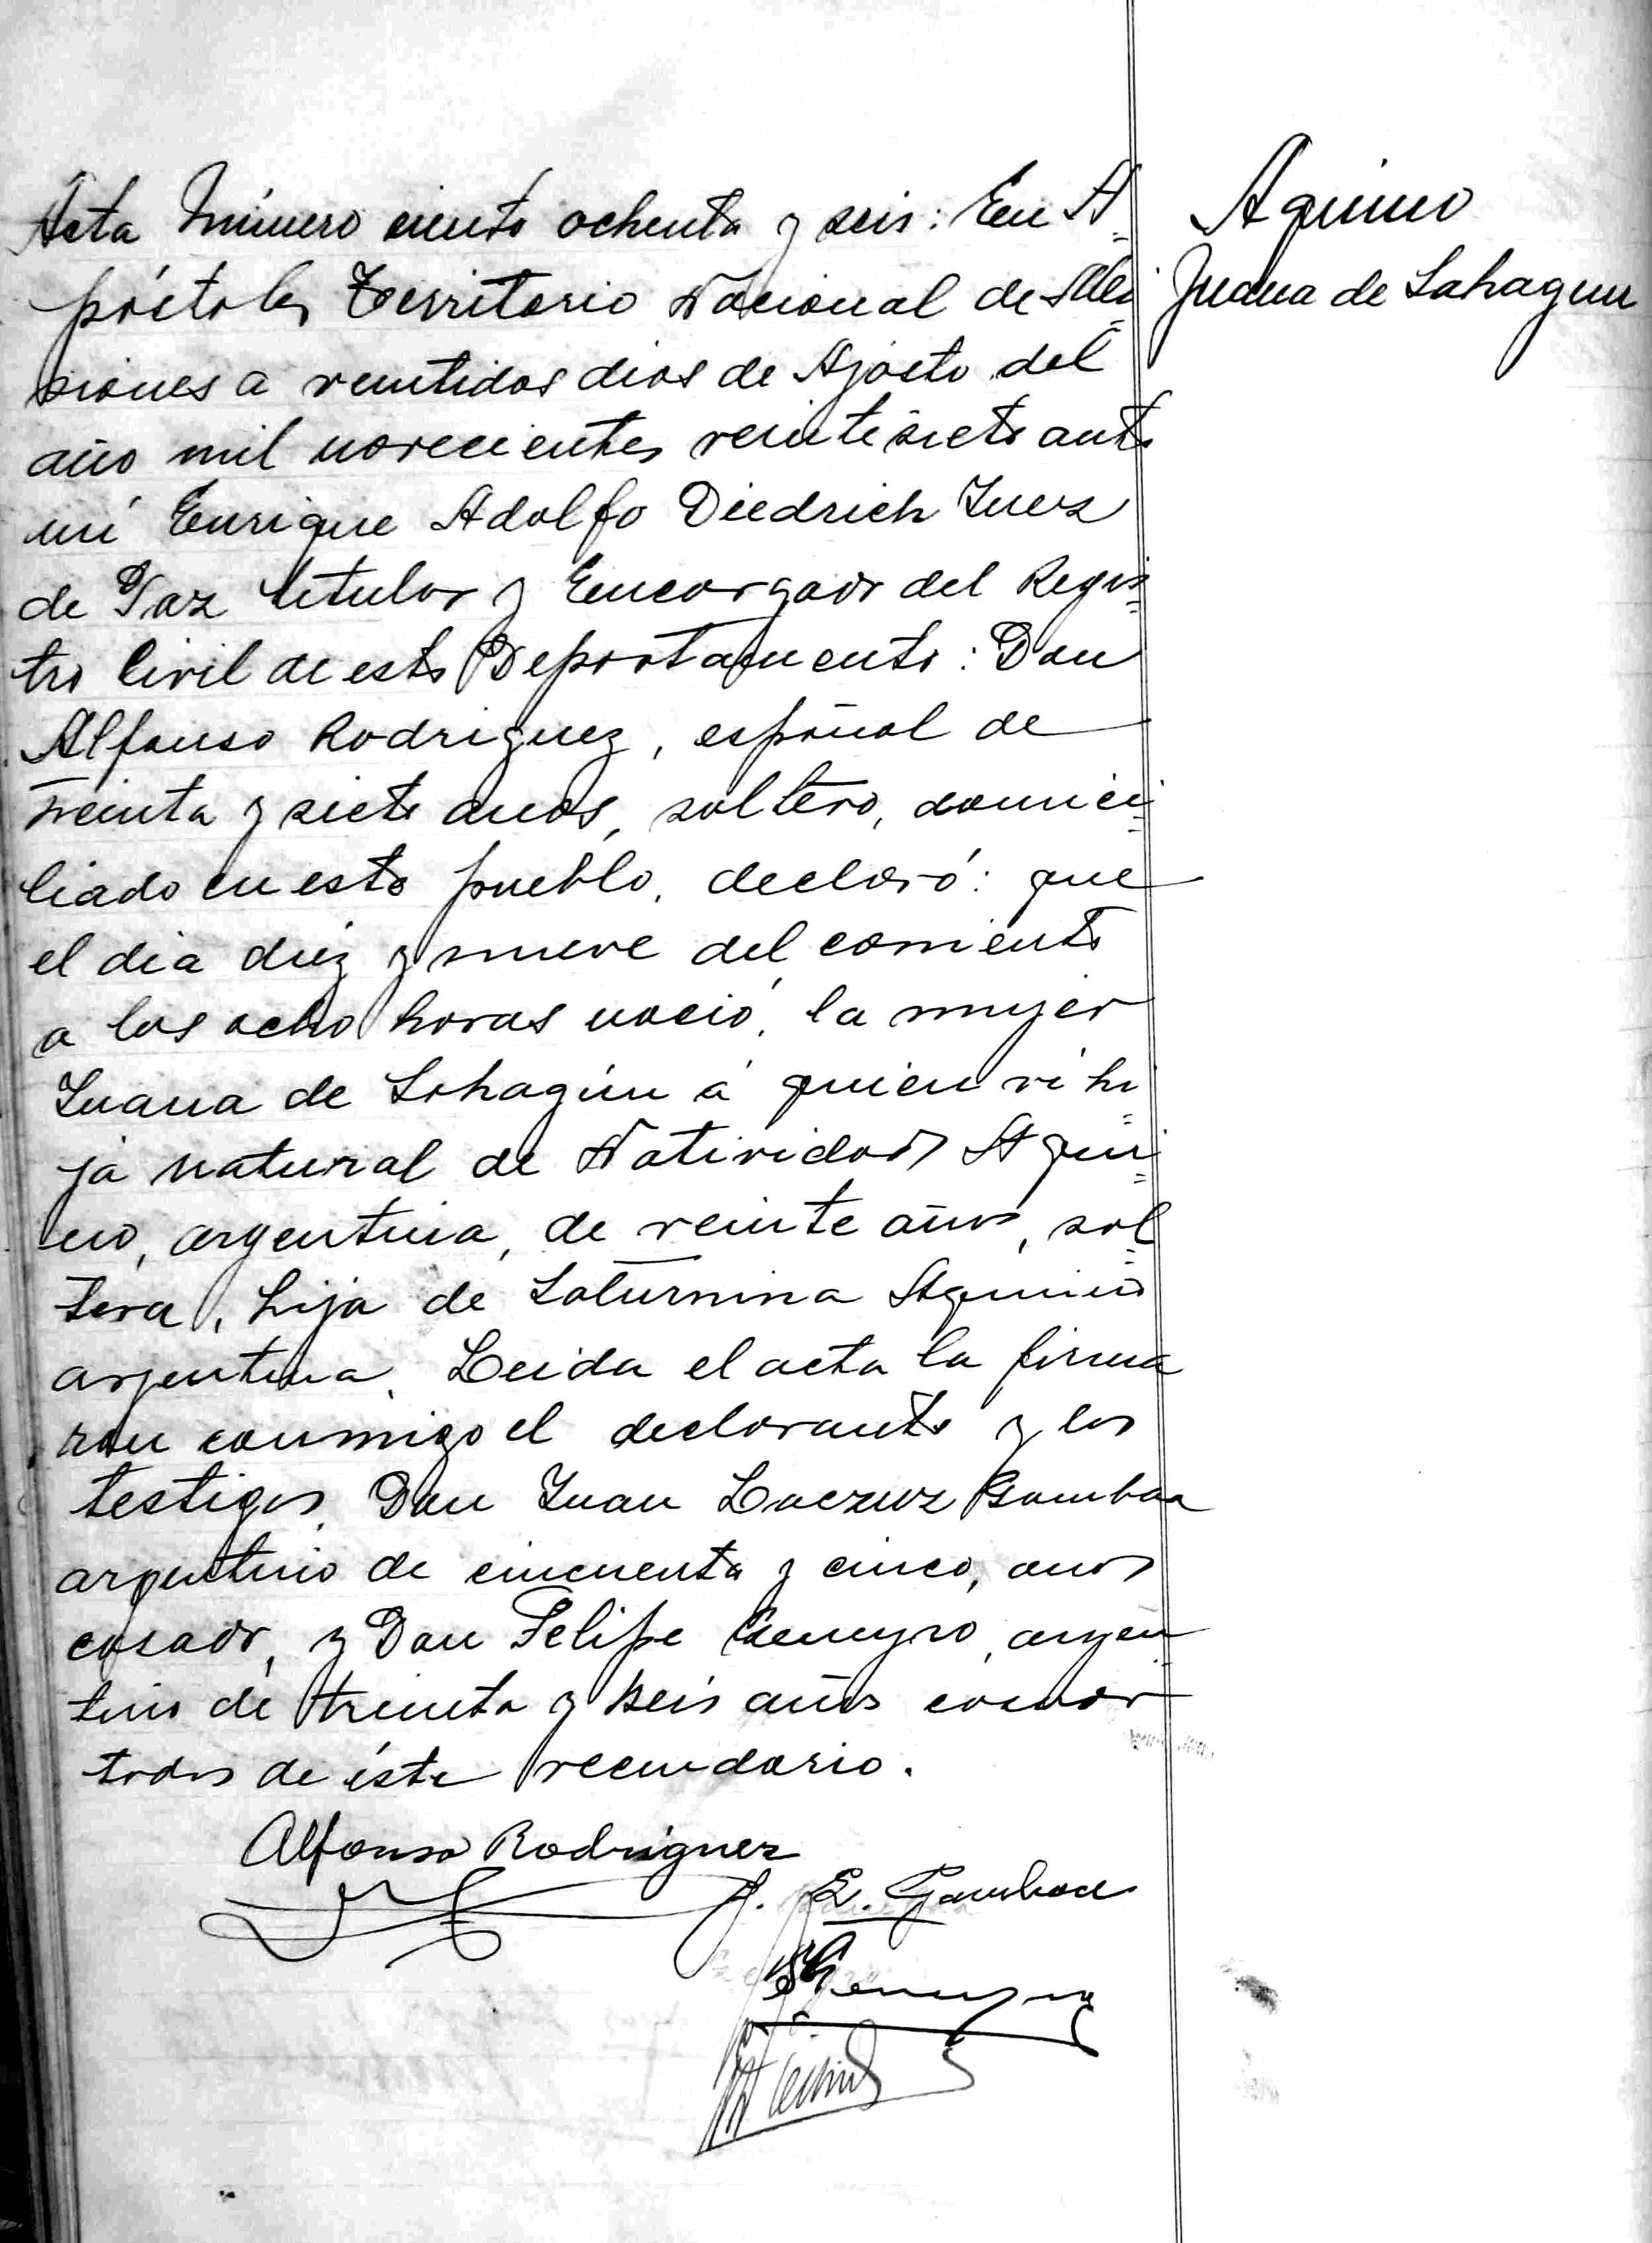 Acta Número ciento ochenta y seis: En A=
póstoles Territorio Nacional de Mi=
siones a veintidos dias de Agosto del
año mil novecientos veintisiete ante
mí Enrique Adolfo Diedrich Juez
de Paz titular y Encargado del Regis=
tro Civil de este Departamento: Don
Alfonso Rodriguez, español de
treinta y siete anos, soltero, domici=
liado en este pueblo, declaró: que
el dia diez y nueve del corriente
a las ocho horas nació, la mujer
Juana de Sahagún á quien vi hi=
ja natural de Natividad Aqui=
no, argentina, de veinte años, sol=
tera, hija de Saturnina Aquino
argentina. Leida el acta la firma
ron conmigo el declarante y los
testigos, Don Juan Gamboa
argentino de cincuenta y cinco, anos
casado, y Don Felipe argen=
tino de treinta y seis años casado
todos de éste vecindario.
Aquino
Juana de Sahagun
Alfonso Rodriguez
J. E. Gamboa